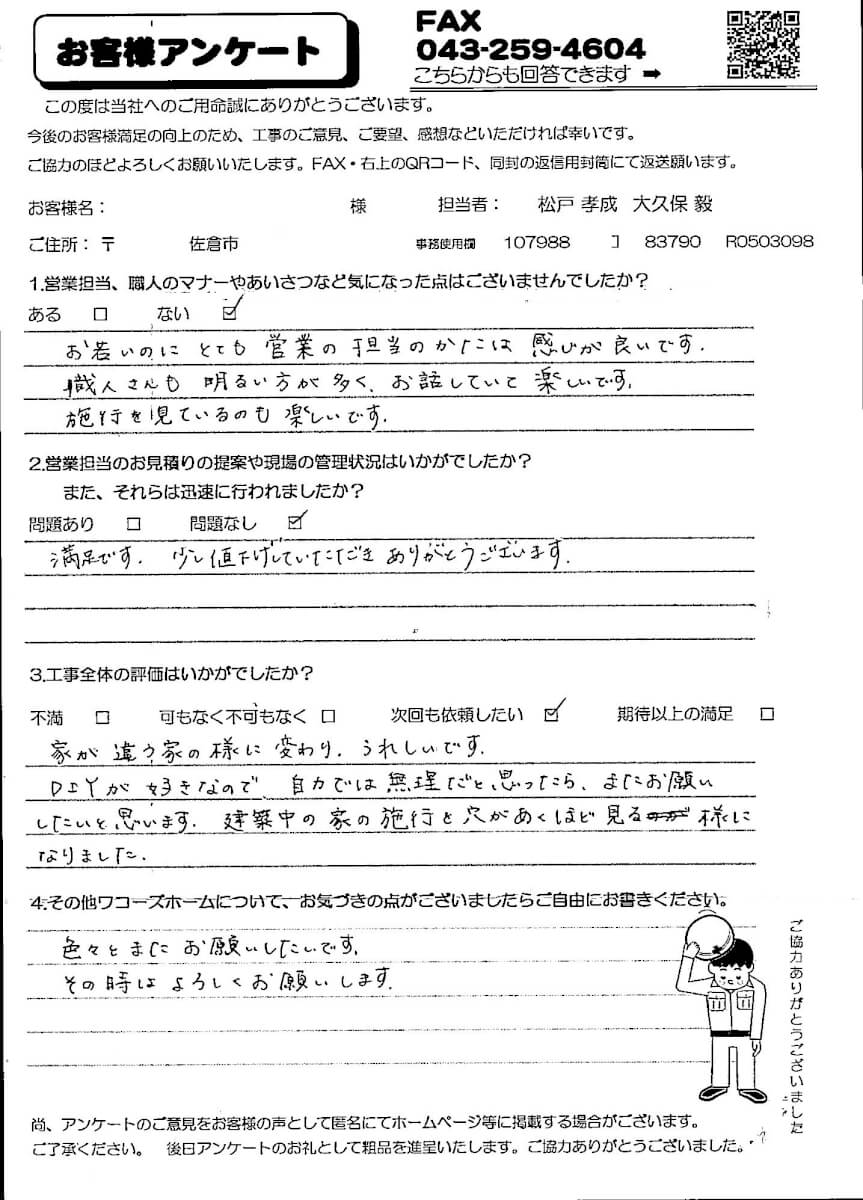 お客様アンケート
FAX
043-259-4604
こちらからも回答できます ➡
この度は当社へのご用命誠にありがとうございます。
今後のお客様満足の向上のため、工事のご意見、ご要望、感想などいただければ幸いです。
ご協力のほどよろしくお願いいたします。FAX・右上のQRコード、同封の返信用封筒にて返送願います。
お客様名： 様 担当者： 松戸 孝成 大久保 毅
ご住所：〒 佐倉市 事務使用欄 107988 コ 83790 R0503098
1.営業担当、職人のマナーやあいさつなど気になった点はございませんでしたか？
ある □ ない ☑
お若いのに とても 営業の 担当のかたは 感じが 良いです.
職人さんも 明るい方が多く、お話していて 楽しいです.
施行を見ているのも 楽しいです.
2.営業担当のお見積りの提案や現場の管理状況はいかがでしたか？
また、それらは迅速に行われましたか？
問題あり □ 問題なし ☑
満足です. 少し値下げしていただき ありがとうございます.
3.工事全体の評価はいかがでしたか？
不満 □ 可もなく不可もなく □ 次回も依頼したい ☑ 期待以上の満足 □
家が 違う家の様に 変わり. うれしいです.
DIYが 好きなので、自力では 無理だと思ったら、またお願い
したいと思います. 建築中の 家の 施行を穴があくほど 見る 様に
なりました.
4.その他ワコーズホームについて、お気づきの点がございましたらご自由にお書きください。
色々とまた お願いしたいです.
その時は よろしくお願いします.
ご協力ありがとうございました
尚、アンケートのご意見をお客様の声として匿名にてホームページ等に掲載する場合がございます。
ご了承ください。 後日アンケートのお礼として粗品を進呈いたします。ご協力ありがとうございました。